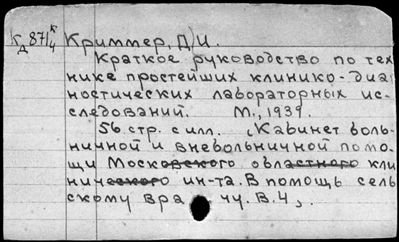 К/Д 871/4к Криммер, Д)И.
Краткое руководство по тех
нике простейших клинико-диаг
ностических лабораторных ис-
следований. М., 1939.
56 стр. с илл. (Кабинет боль-
ничной и внебольничной помо-
щи Московского областного кли
нического ин-та. В помощь сель
скому врачу. В.4).